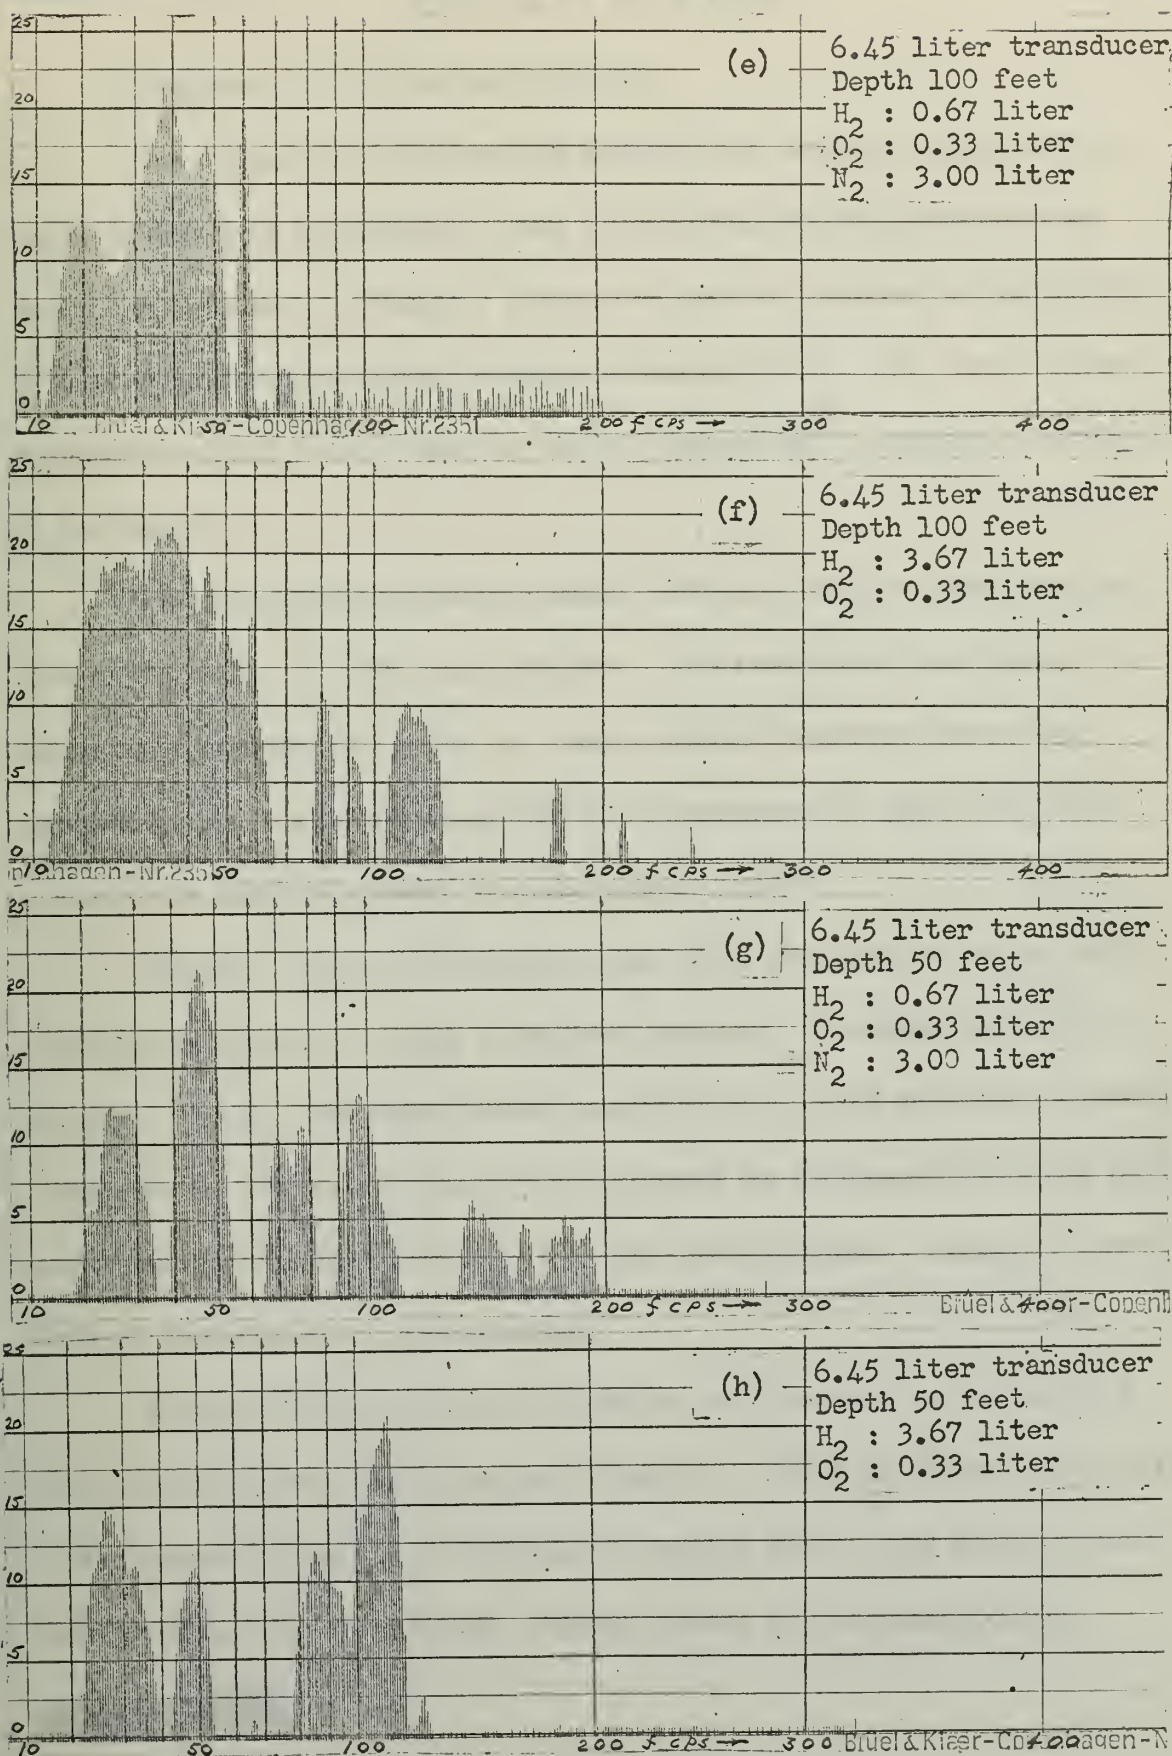 25
20
15
10
5
0
(e)
6.45 liter transducer
Depth 100 feet
H2 : 0.67 liter
O2 : 0.33 liter
N2 : 3.00 liter
10 50 100 200 f cps → 300 400
Bruel & Kj -Copenhagen-Nr.2351
25
20
15
10
5
0
(f)
6.45 liter transducer
Depth 100 feet
H2 : 3.67 liter
O2 : 0.33 liter
10 50 100 200 f cps → 300 400
nhagen-Nr.2351
25
20
15
10
5
0
(g)
6.45 liter transducer
Depth 50 feet
H2 : 0.67 liter
O2 : 0.33 liter
N2 : 3.00 liter
10 50 100 200 f cps → 300 400
Brüel & r-Copenh
25
20
15
10
5
0
(h)
6.45 liter transducer
Depth 50 feet
H2 : 3.67 liter
O2 : 0.33 liter
10 50 100 200 f cps → 300 400
Brüel & Kjær-Co hagen-N